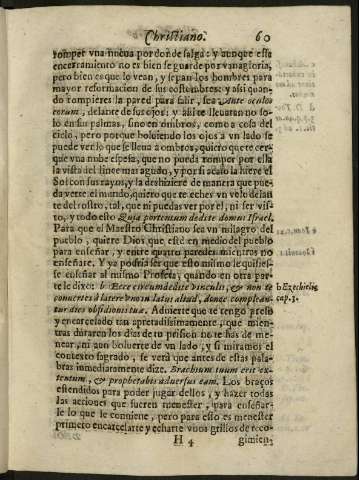 Christiano. 60
romper vna nueua por donde salga: y aunque esta
encerramiento no es bien se guarde por vanagloria,
pero bien es que lo vean, y sepan los hombres para
mayor reformacion de sus costumbres: y assi quan
do rompieres la pared para salir, sea Ante oculos
eorum, delante de sus ojos: y assi te lleuaran no so-
lo en sus palmas, sino en ombros, como a cosa del
cielo, pero porque boluiendo los ojos a vn lado se
puede ver lo que se lleua a ombros, quiero que te cer-
que vna nube espesa, que no pueda romper por ella
la vista del lince mas agudo, y por si acaso la hiere el
Sol con sus rayos, y la deshiziere de manera que pue-
da verte el mundo, quiero que te eches vn velo delan
te del rostro, tal, que ni puedas ver por el, ni ser vis-
to, y todo esto Quia portentum dedi te domui Israel.
Para que el Maestro Christiano sea vn milagro del
pueblo, quiere Dios que esté en medio del pueblo
para enseñar, y entre quatro paredes mientras no
enseñare. Y ya podria ser que esto mismo le quisies-
se enseñar al mismo Profeta, quando en otra par-
te le dize: b Ecce circumdedi te vinculis, & non te
conuertes à latere vno in latus aliud, donec complean-
tur dies obsidionis tuæ. Aduierte que te tengo preso
y encarcelado tan apretadissimamente, que mien-
tras duraren los dias de tu prision no te has de me-
near, ni aun boluerte de vn lado, y si miramos el
contexto sagrado, se verà que antes de estas pala-
bras inmediatamente dize. Brachium tuum erit ex-
tentum, & prophetabis aduersus eam. Los braços
estendidos para poder jugar dellos, y hazer todas
las acciones que fueren menester, para enseñar-
le lo que le conuiene, pero para esto es menester
primero encarcelarte y echarte vnos grillos de reco-
H 4 gimien-
b Ezechielis
cap. 3.